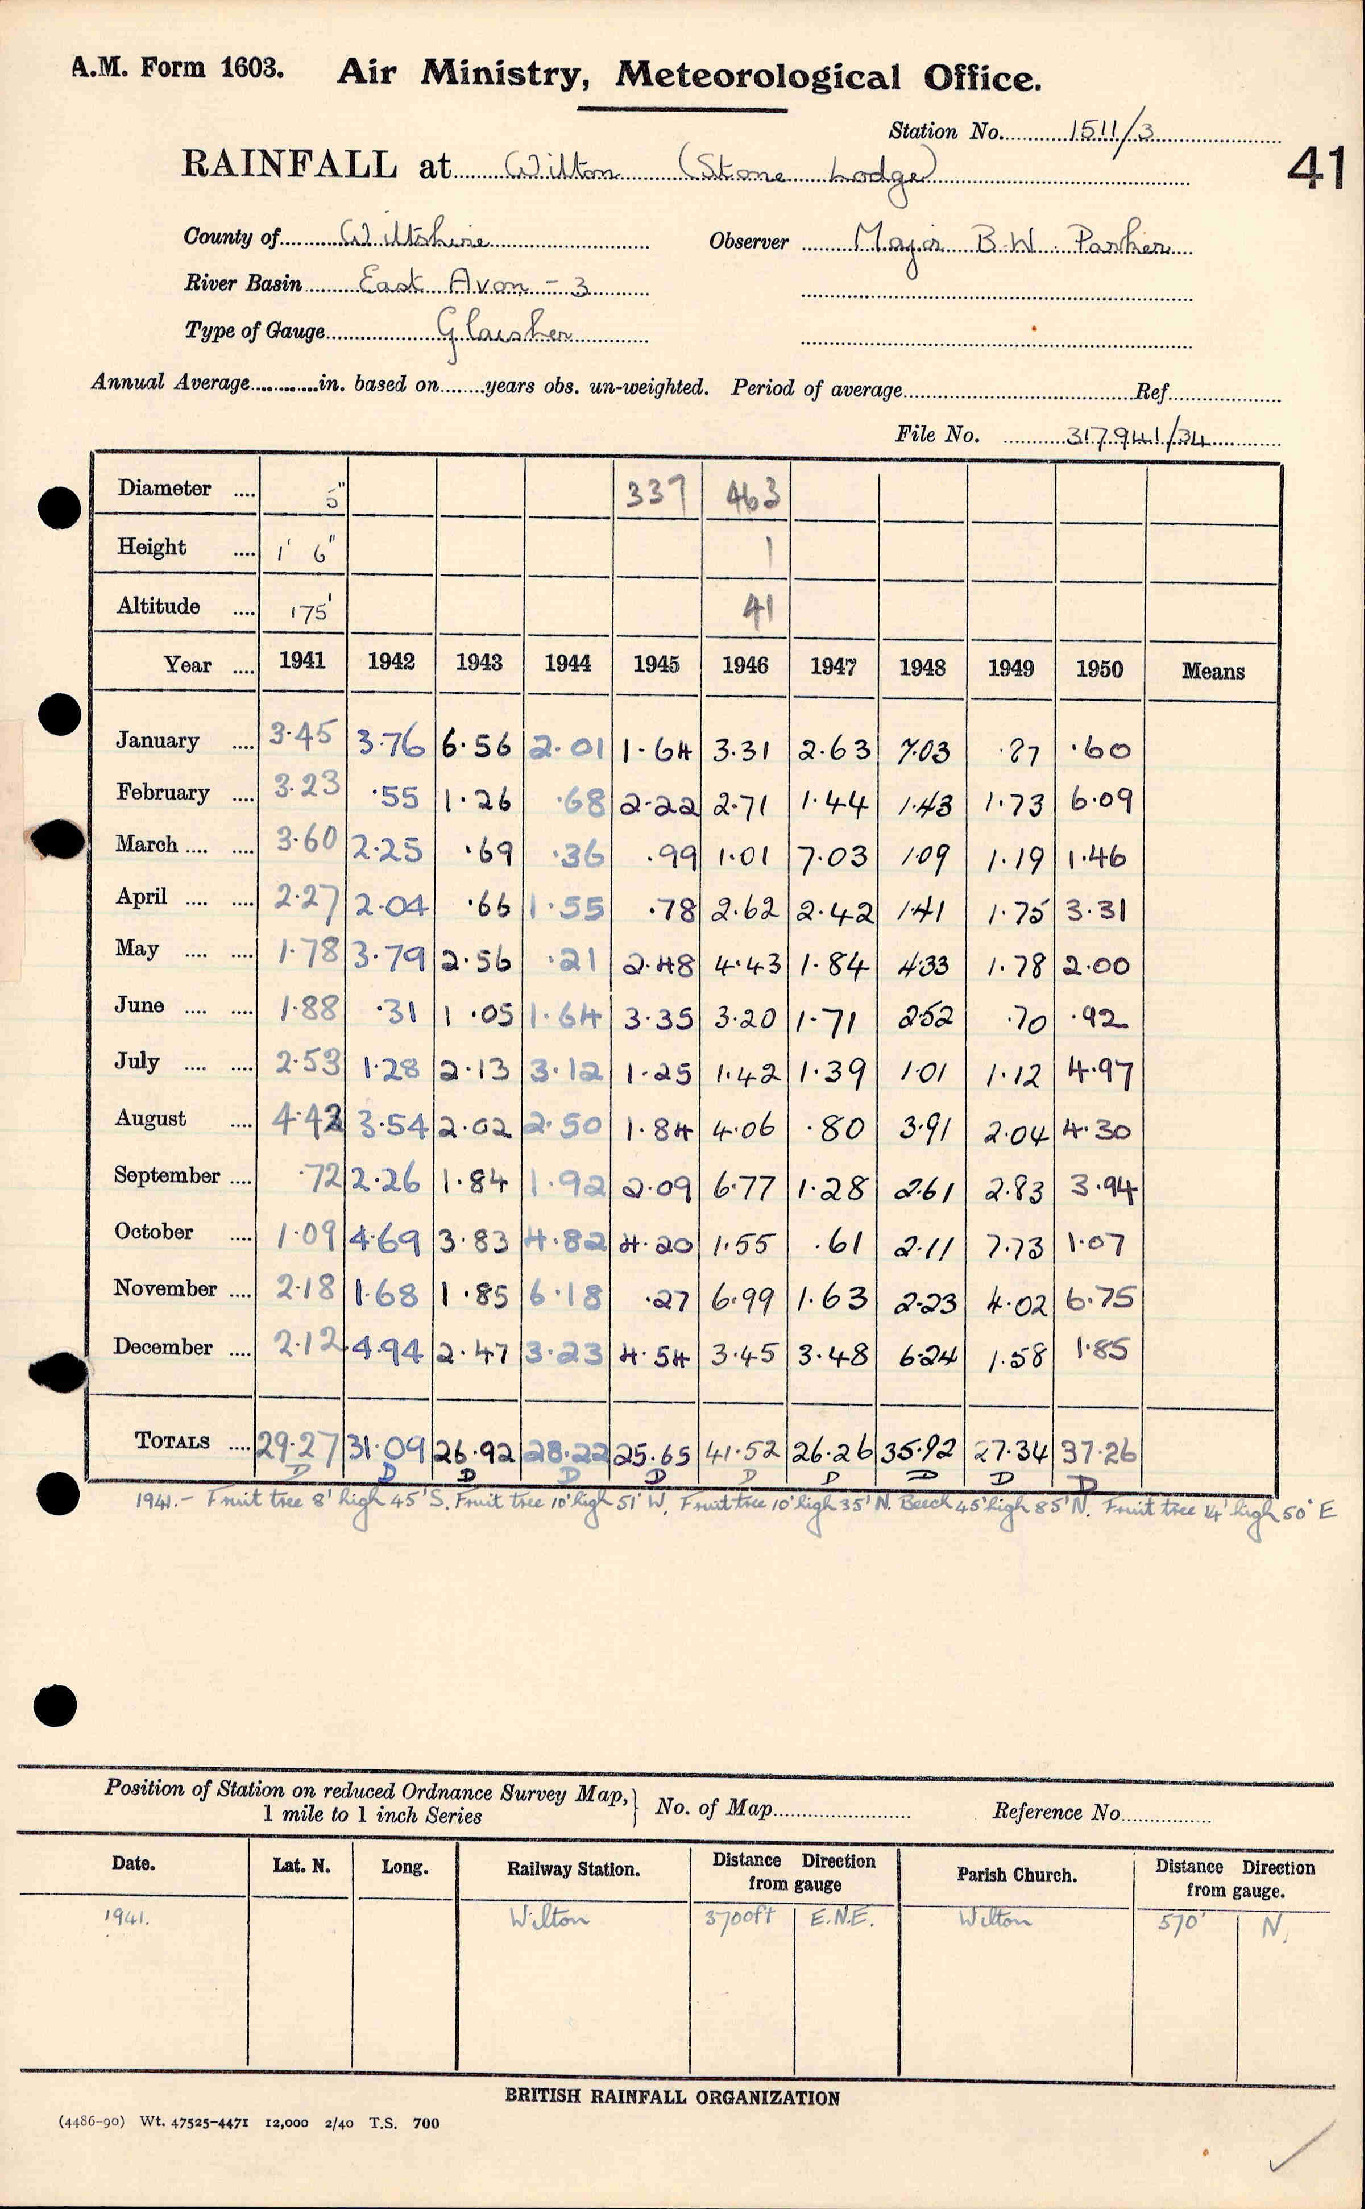 A.M. Form 1603. Air Ministry, Meteorological Office.
Station No. 1511/3
RAINFALL at Wilton (Stone Lodge) 41
County of Wiltshire Observer Major B.W. Parker
River Basin East Avon - 3
Type of Gauge Glaisher
Annual Average in. based on years obs. un-weighted. Period of average Ref
File No. 317941/34
Diameter .... 5" 337 463
Height .... 1' 6" 1
Altitude .... 175' 41
Year .... 1941 1942 1943 1944 1945 1946 1947 1948 1949 1950 Means
January .... 3.45 3.76 6.56 2.01 1.64 3.31 2.63 7.03 .87 .60
February .... 3.23 .55 1.26 .68 2.22 2.71 1.44 1.43 1.73 6.09
March .... .... 3.60 2.25 .69 .36 .99 1.01 7.03 1.09 1.19 1.46
April .... .... 2.27 2.04 .66 1.55 .78 2.62 2.42 1.41 1.75 3.31
May .... .... 1.78 3.79 2.56 .21 2.48 4.43 1.84 4.33 1.78 2.00
June .... .... 1.88 .31 1.05 1.64 3.35 3.20 1.71 2.52 .70 .92
July .... .... 2.53 1.28 2.13 3.12 1.25 1.42 1.39 1.01 1.12 4.97
August .... 4.42 3.54 2.02 2.50 1.84 4.06 .80 3.91 2.04 4.30
September .... .72 2.26 1.84 1.92 2.09 6.77 1.28 2.61 2.83 3.94
October .... 1.09 4.69 3.83 4.82 4.20 1.55 .61 2.11 7.73 1.07
November .... 2.18 1.68 1.85 6.18 .27 6.99 1.63 2.23 4.02 6.75
December .... 2.12 4.94 2.47 3.23 4.54 3.45 3.48 6.24 1.58 1.85
TOTALS .... 29.27 31.09 26.92 28.22 25.65 41.52 26.26 35.92 27.34 37.26
D D D D D D D D D D
1941.- Fruit tree 8' high 45' S. Fruit tree 10' high 51' W. Fruit tree 10' high 35' N. Beech 45' high 85' N. Fruit tree 14' high 50' E
Position of Station on reduced Ordnance Survey Map, } No. of Map Reference No.
1 mile to 1 inch Series
Date. Lat. N. Long. Railway Station. Distance Direction from gauge Parish Church. Distance Direction from gauge.
1941. Wilton 3700ft E.N.E. Wilton 570' N.
BRITISH RAINFALL ORGANIZATION
(4486-90) Wt. 47525-4471 12,000 2/40 T.S. 700